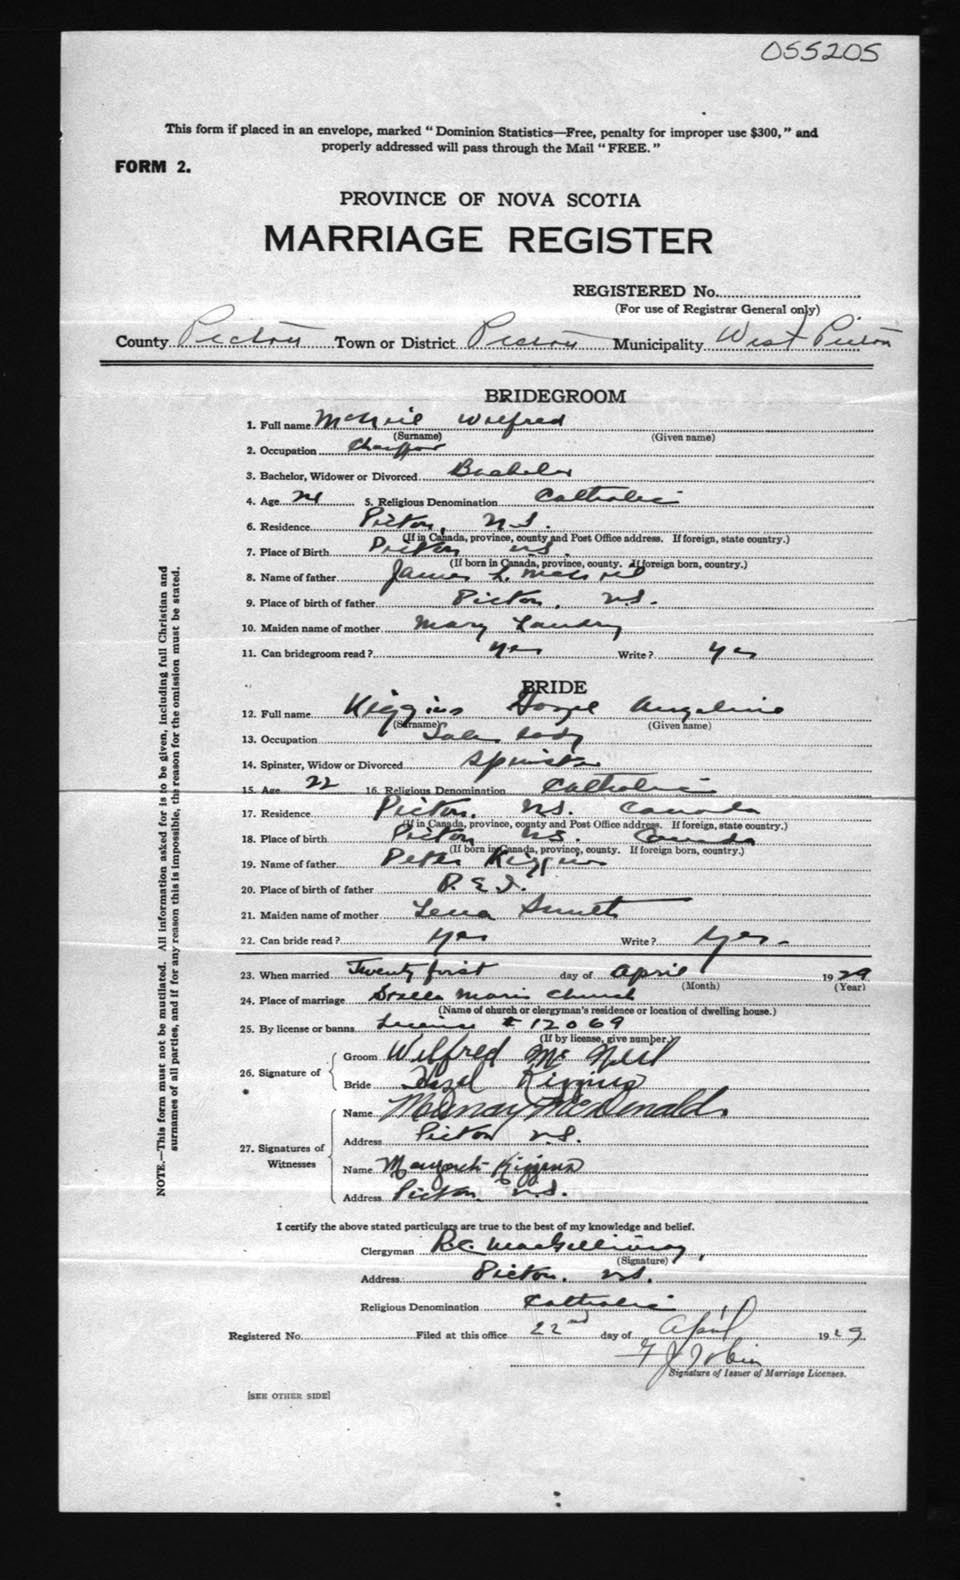 055205
This form if placed in an envelope, marked "Dominion Statistics—Free, penalty for improper use $300," and
properly addressed will pass through the Mail "FREE."
FORM 2.
PROVINCE OF NOVA SCOTIA
MARRIAGE REGISTER
REGISTERED No.
(For use of Registrar General only)
County Pictou Town or District Pictou Municipality West Pictou
BRIDEGROOM
1. Full name McNeil Wilfred
(Surname) (Given name)
2. Occupation Chauffour
3. Bachelor, Widower or Divorced Bachelor
4. Age 5. Religious Denomination Catholic
6. Residence Pictou, N.S.
(If in Canada, province, county and Post Office address. If foreign, state country.)
7. Place of Birth Pictou N.S.
(If born in Canada, province, county. If foreign born, country.)
8. Name of father James L. McNeil
9. Place of birth of father Pictou, N.S.
10. Maiden name of mother Mary Landry
11. Can bridegroom read? Yes Write? Yes
BRIDE
12. Full name Kiggins Hazel Angeline
(Surname) (Given name)
13. Occupation Sales Lady
14. Spinster, Widow or Divorced Spinster
15. Age 22 16. Religious Denomination Catholic
17. Residence Pictou, N.S. Canada
(If in Canada, province, county and Post Office address. If foreign, state country.)
18. Place of birth Pictou N.S. Canada
(If born in Canada, province, county. If foreign born, country.)
19. Name of father Peter Kiggins
20. Place of birth of father P.E.I.
21. Maiden name of mother Lena
22. Can bride read? Yes Write? Yes.
23. When married Twenty first day of April 1929
(Month) (Year)
24. Place of marriage Stella Maris Church
(Name of church or clergyman's residence or location of dwelling house.)
25. By license or banns License # 12069
(If by license, give number.)
26. Signature of
Groom Wilfred McNeil
Bride Hazel Kiggins
27. Signatures of Witnesses
Name McDonald
Address Pictou N.S.
Name Margaret Kiggins
Address Pictou N.S.
I certify the above stated particulars are true to the best of my knowledge and belief.
Clergyman R.C. MacGillivray,
(Signature)
Address Pictou. N.S.
Religious Denomination Catholic
Registered No. Filed at this office 22nd day of April 1929
G J Tobin
Signature of Issuer of Marriage Licenses.
[SEE OTHER SIDE]
NOTE.—This form must not be mutilated. All information asked for is to be given, including full Christian and
surnames of all parties, and if for any reason this is impossible, the reason for the omission must be stated.